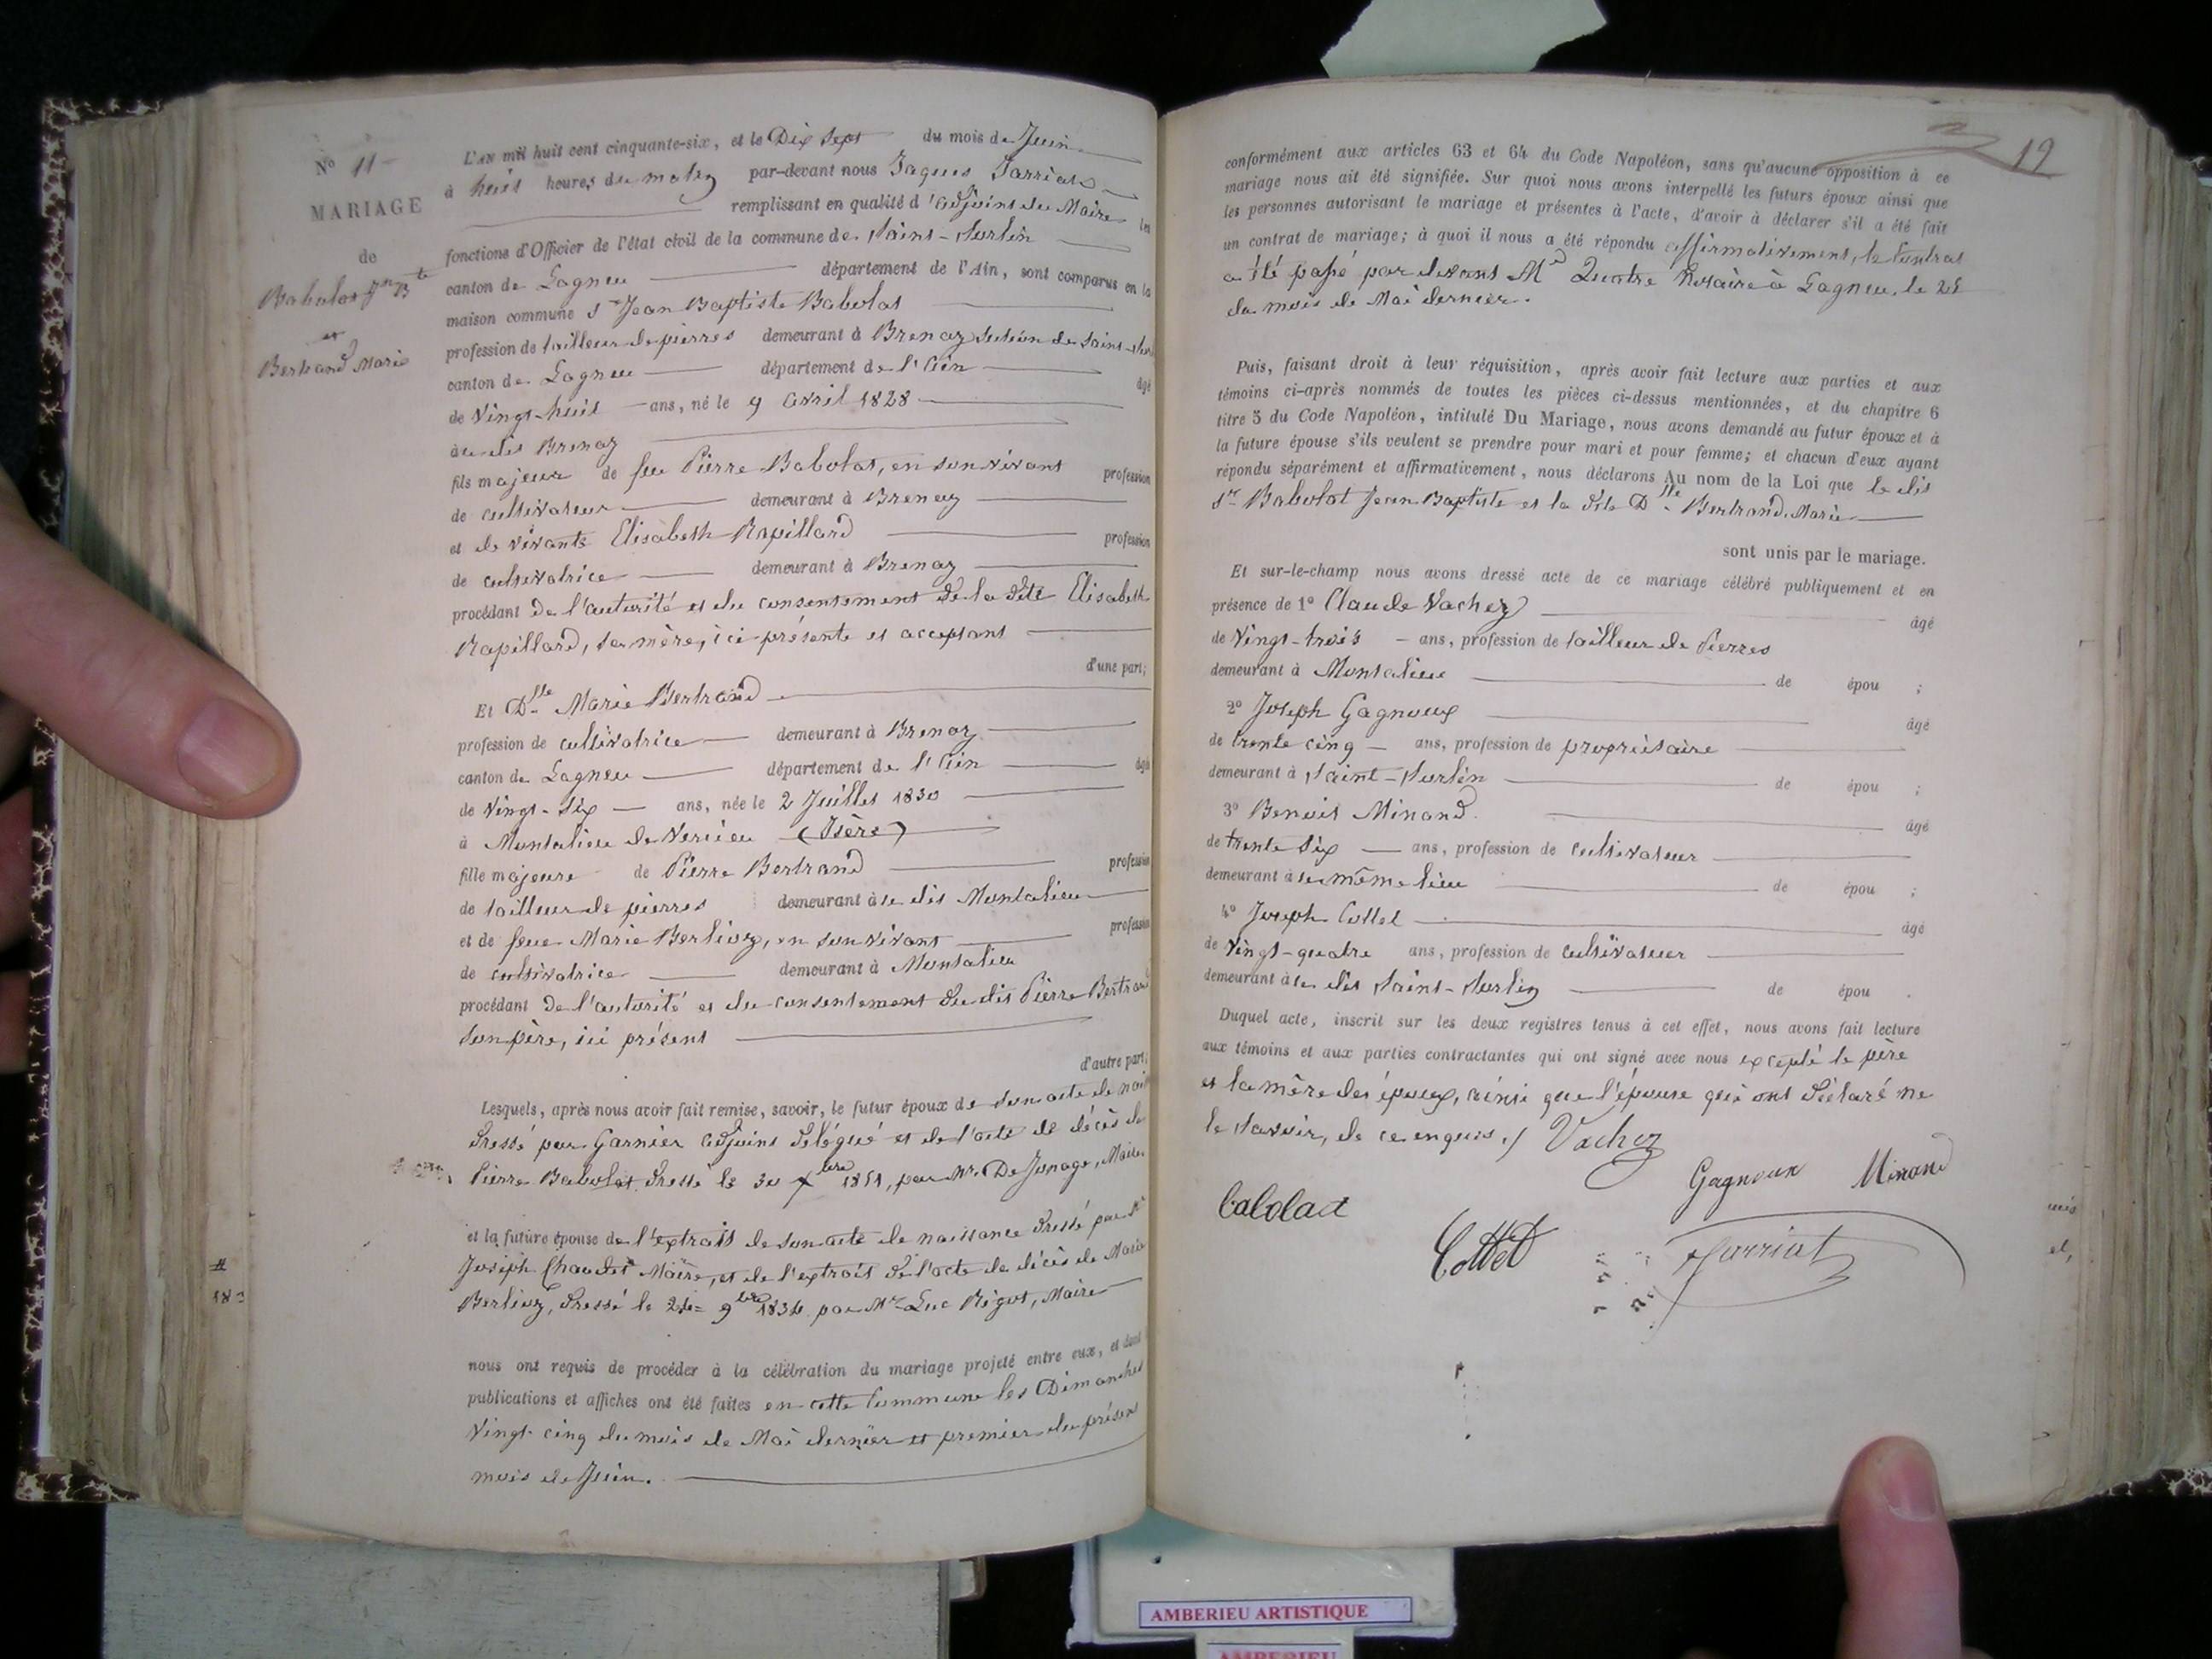 N° 11
MARIAGE
de
Babolat Jn Bte
et
Bertrand Marie
L'an mil huit cent cinquante-six, et le Dix Sept du mois de Juin
à huit heures du matin par-devant nous Jaques Sarriat
remplissant en qualité d'adjoint du Maire les
fonctions d'Officier de l'état civil de la commune de Saint-Surlin
canton de Lagneu département de l'Ain, sont comparus en la
maison commune Sr Jean Baptiste Babolat
profession de tailleur de pierres demeurant à Brenaz Section de Saint-
canton de Lagneu département de l'Ain âgé
de Vingt-huit ans, né le 9 Avril 1828
au dit Brenaz
fils majeur de feu Pierre Babolat, en son vivant profession
de cultivateur demeurant à Brenaz
et de vivante Elisabeth Rapillard profession
de cultivatrice demeurant à Brenaz
procédant de l'autorité et du consentement de la dite Elisabeth
Rapillard, sa mère, ici présente et acceptant
d'une part;
Et Dlle Marie Bertrand
profession de cultivatrice demeurant à Brenaz
canton de Lagneu département de l'Ain âgé
de Vingt-six ans, née le 2 Juillet 1830
à Montalieu de Vercieu (Isère)
fille majeure de Pierre Bertrand profession
de tailleur de pierres demeurant à u dit Montalieu
et de feue Marie Berlioz, en son vivant profession
de cultivatrice demeurant à Montalieu
procédant de l'autorité et du consentement du dit Pierre Bertrand
son père, ici présent
d'autre part;
Lesquels, après nous avoir fait remise, savoir, le futur époux de son acte de
dressé par Garnier adjoint délégué et de l'acte de décès de
Pierre Babolat dressé le 30 Xbre 1851, par Mr. De Jonage, Maire
et la future épouse de l'extrait de son acte de naissance dressé par Mr
Joseph Chaudet Maire, et de l'extrait de l'acte de décès de Marie
Berlioz, dressé le 24 9bre 1834 par Mr Luc Rigot, Maire
nous ont requis de procéder à la célébration du mariage projeté entre eux, et dont
publications et affiches ont été faites en cette Commune les Dimanches
Vingt-cinq du mois de Mai dernier et premier du présent
mois de Juin.
#
183
19
conformément aux articles 63 et 64 du Code Napoléon, sans qu'aucune opposition à ce
mariage nous ait été signifiée. Sur quoi nous avons interpellé les futurs époux ainsi que
les personnes autorisant le mariage et présentes à l'acte, d'avoir à déclarer s'il a été fait
un contrat de mariage; à quoi il nous a été répondu affirmativement, le Contrat
a été passé par devant Me Quatre Notaire à Lagneu, le 25
du mois de Mai dernier.
Puis, faisant droit à leur réquisition, après avoir fait lecture aux parties et aux
témoins ci-après nommés de toutes les pièces ci-dessus mentionnées, et du chapitre 6
titre 5 du Code Napoléon, intitulé Du Mariage, nous avons demandé au futur époux et à
la future épouse s'ils veulent se prendre pour mari et pour femme; et chacun d'eux ayant
répondu séparément et affirmativement, nous déclarons Au nom de la Loi que le dit
Sr Babolat Jean Baptiste et la dite Dlle Bertrand Marie
sont unis par le mariage.
Et sur-le-champ nous avons dressé acte de ce mariage célébré publiquement et en
présence de 1° Claude Vachez âgé
de Vingt-trois ans, profession de tailleur de Pierres
demeurant à Montalieu de épou ;
2° Joseph Gagnoux âgé
de trente cinq ans, profession de propriétaire
demeurant à Saint-Surlin de épou ;
3° Benoit Minand âgé
de trente six ans, profession de cultivateur
demeurant à u même lieu de épou ;
4° Joseph Cottet âgé
de Vingt-quatre ans, profession de cultivateur
demeurant à u dit Saint-Surlin de épou .
Duquel acte, inscrit sur les deux registres tenus à cet effet, nous avons fait lecture
aux témoins et aux parties contractantes qui ont signé avec nous excepté le père
et la mère des époux, ainsi que l'épouse qui ont déclaré ne
le savoir, de ce enquis ./ Vachez
Gagnoux Minand
Babolat
Cottet Sarriat
AMBERIEU ARTISTIQUE
AMBERIEU